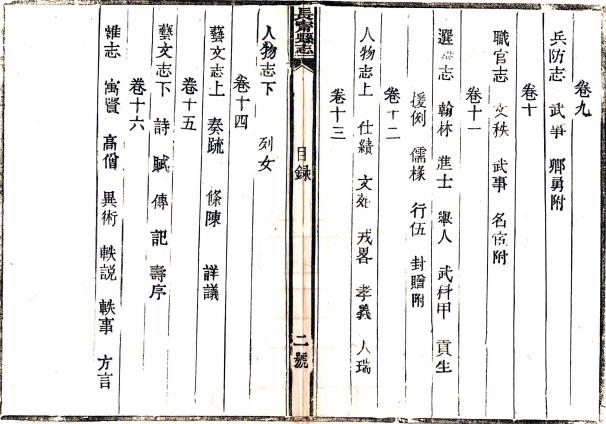 卷九
兵防志 武事 鄉勇附
卷十
職官志 文秩 武事 名宦附
卷十一
選舉志 翰林 進士 舉人 武科甲 貢生
援例 儒椽 行伍 封贈附
卷十二
人物志上 仕績 文苑 戎畧 孝義 人瑞
卷十三
長寧縣志
目錄
二號
人物志下 列女
卷十四
藝文志上 奏疏 條陳 詳議
卷十五
藝文志下 詩 賦 傳 記 壽序
卷十六
雜志 寓賢 高僧 異術 軼説 軼事 方言